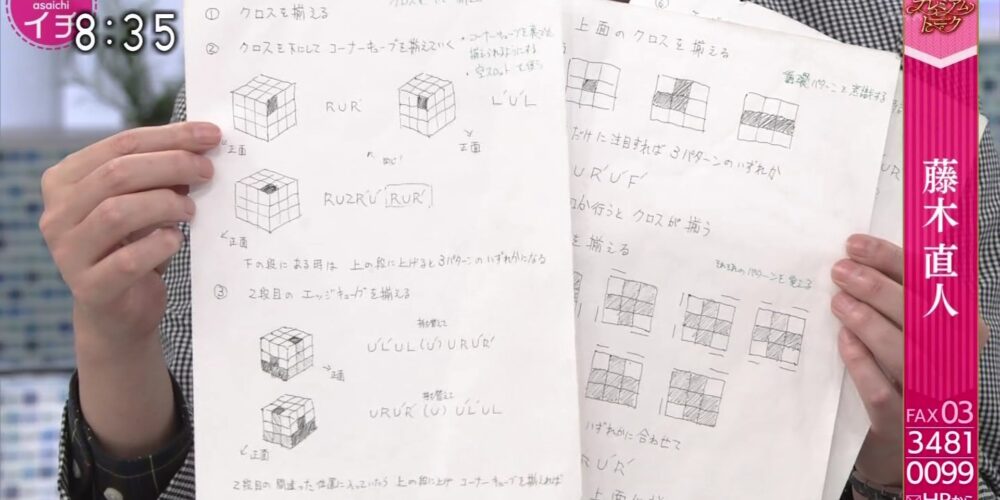 asaichi
イチ
8:35
プレミアム
トーク
藤木直人
FAX 03
3481
0099
HPから
① クロスを揃える
② クロスを下にして コーナーキューブを揃えていく
・コーナーキューブを
揃えられるようにする
・空スロットを使う
RUR'
L'U'L
正面
正面
RU2R'U' RUR'
正面
下の段にある時は 上の段に上げると3パターンのいずれかになる
③ 2段目の エッジキューブを揃える
持ち替えて
U'L'UL (U') URU'R'
正面
持ち替えて
URU'R' (U) U'L'UL
正面
2段目の間違った位置に入っていたら 上の段に上げ コーナーキューブを揃えれば
上面のクロスを揃える
だけに注目すれば 3パターンのいずれか
UR'U'F'
行うと クロスが揃う
を揃える
それぞれのパターンを覚える
いずれかに合わせて
RU'R'
上面に